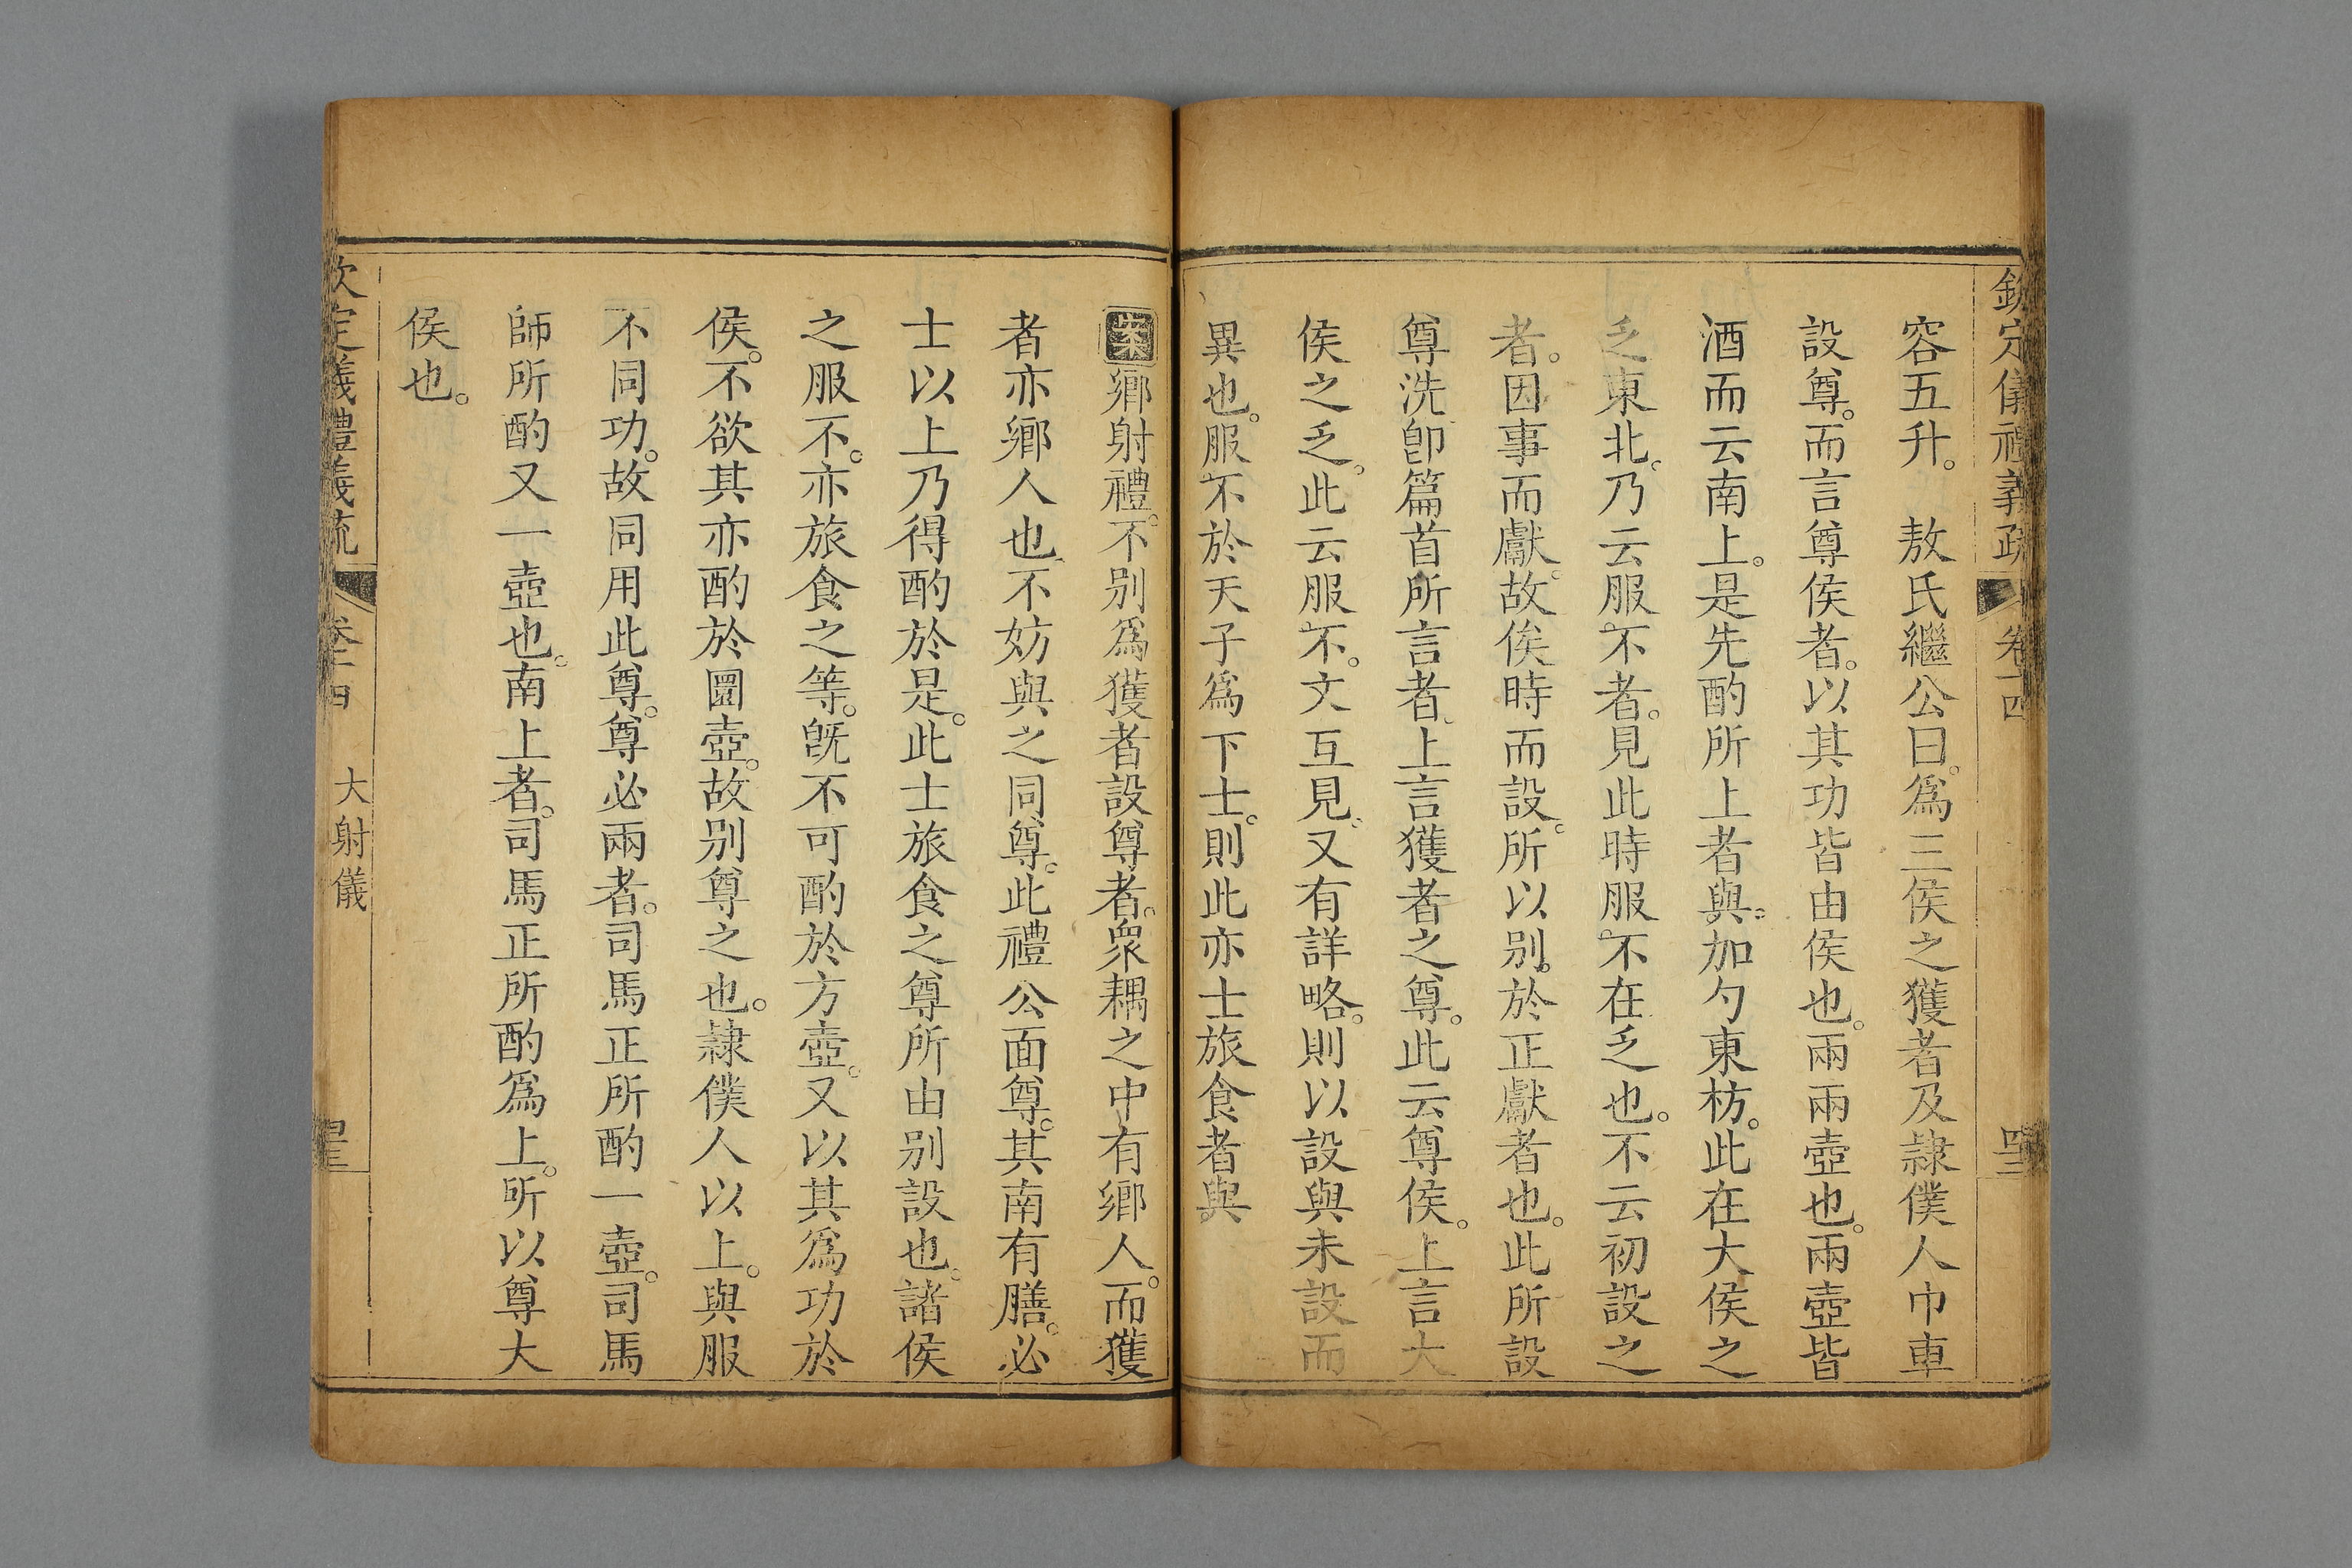 欽定儀禮義疏 卷十四
容五升。 敖氏繼公曰。爲三侯之獲者及隷僕人巾車
設尊。而言尊侯者。以其功皆由侯也。兩兩壺也。兩壺皆
酒而云南上。是先酌所上者與。加勺東枋。此在大侯之
乏東北。乃云服不者。見此時服不在乏也。不云初設之
者。因事而獻。故俟時而設。所以别於正獻者也。此所設
尊洗卽篇首所言者。上言獲者之尊。此云尊侯。上言大
侯之乏。此云服不。文互見。又有詳略。則以設與未設而
異也。服不於天子爲下士。則此亦士旅食者與
案鄉射禮。不別爲獲者設尊者。衆耦之中有鄉人。而獲
者亦鄉人也。不妨與之同尊。此禮公面尊。其南有膳。必
士以上乃得酌於是。此士旅食之尊所由別設也。諸侯
之服不。亦旅食之等。旣不可酌於方壺。又以其爲功於
侯。不欲其亦酌於圜壺。故別尊之也。隷僕人以上。與服
不同功。故同用此尊。尊必兩者。司馬正所酌一壺。司馬
師所酌又一壺也。南上者。司馬正所酌爲上。所以尊大
侯也。
欽定儀禮義疏 卷十四 大射儀